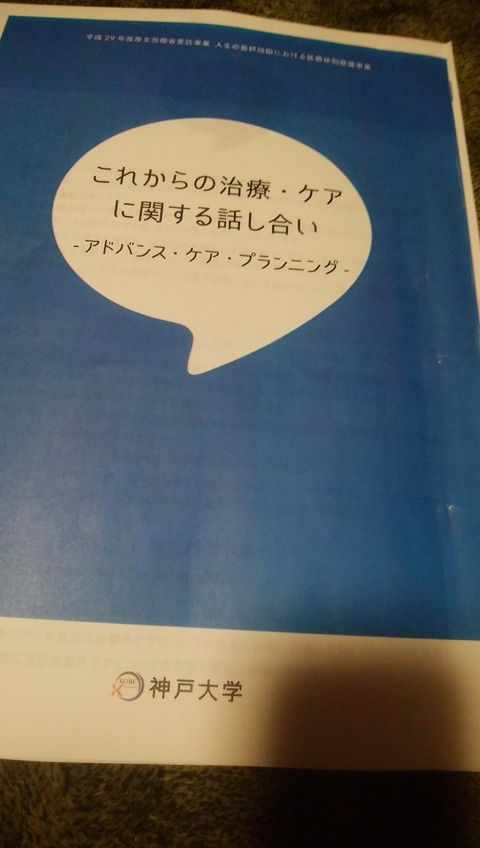 平成29年度厚生労働省委託事業 人生の最終段階における医療体制整備事業
これからの治療・ケア
に関する話し合い
- アドバンス・ケア・プランニング -
神戸大学